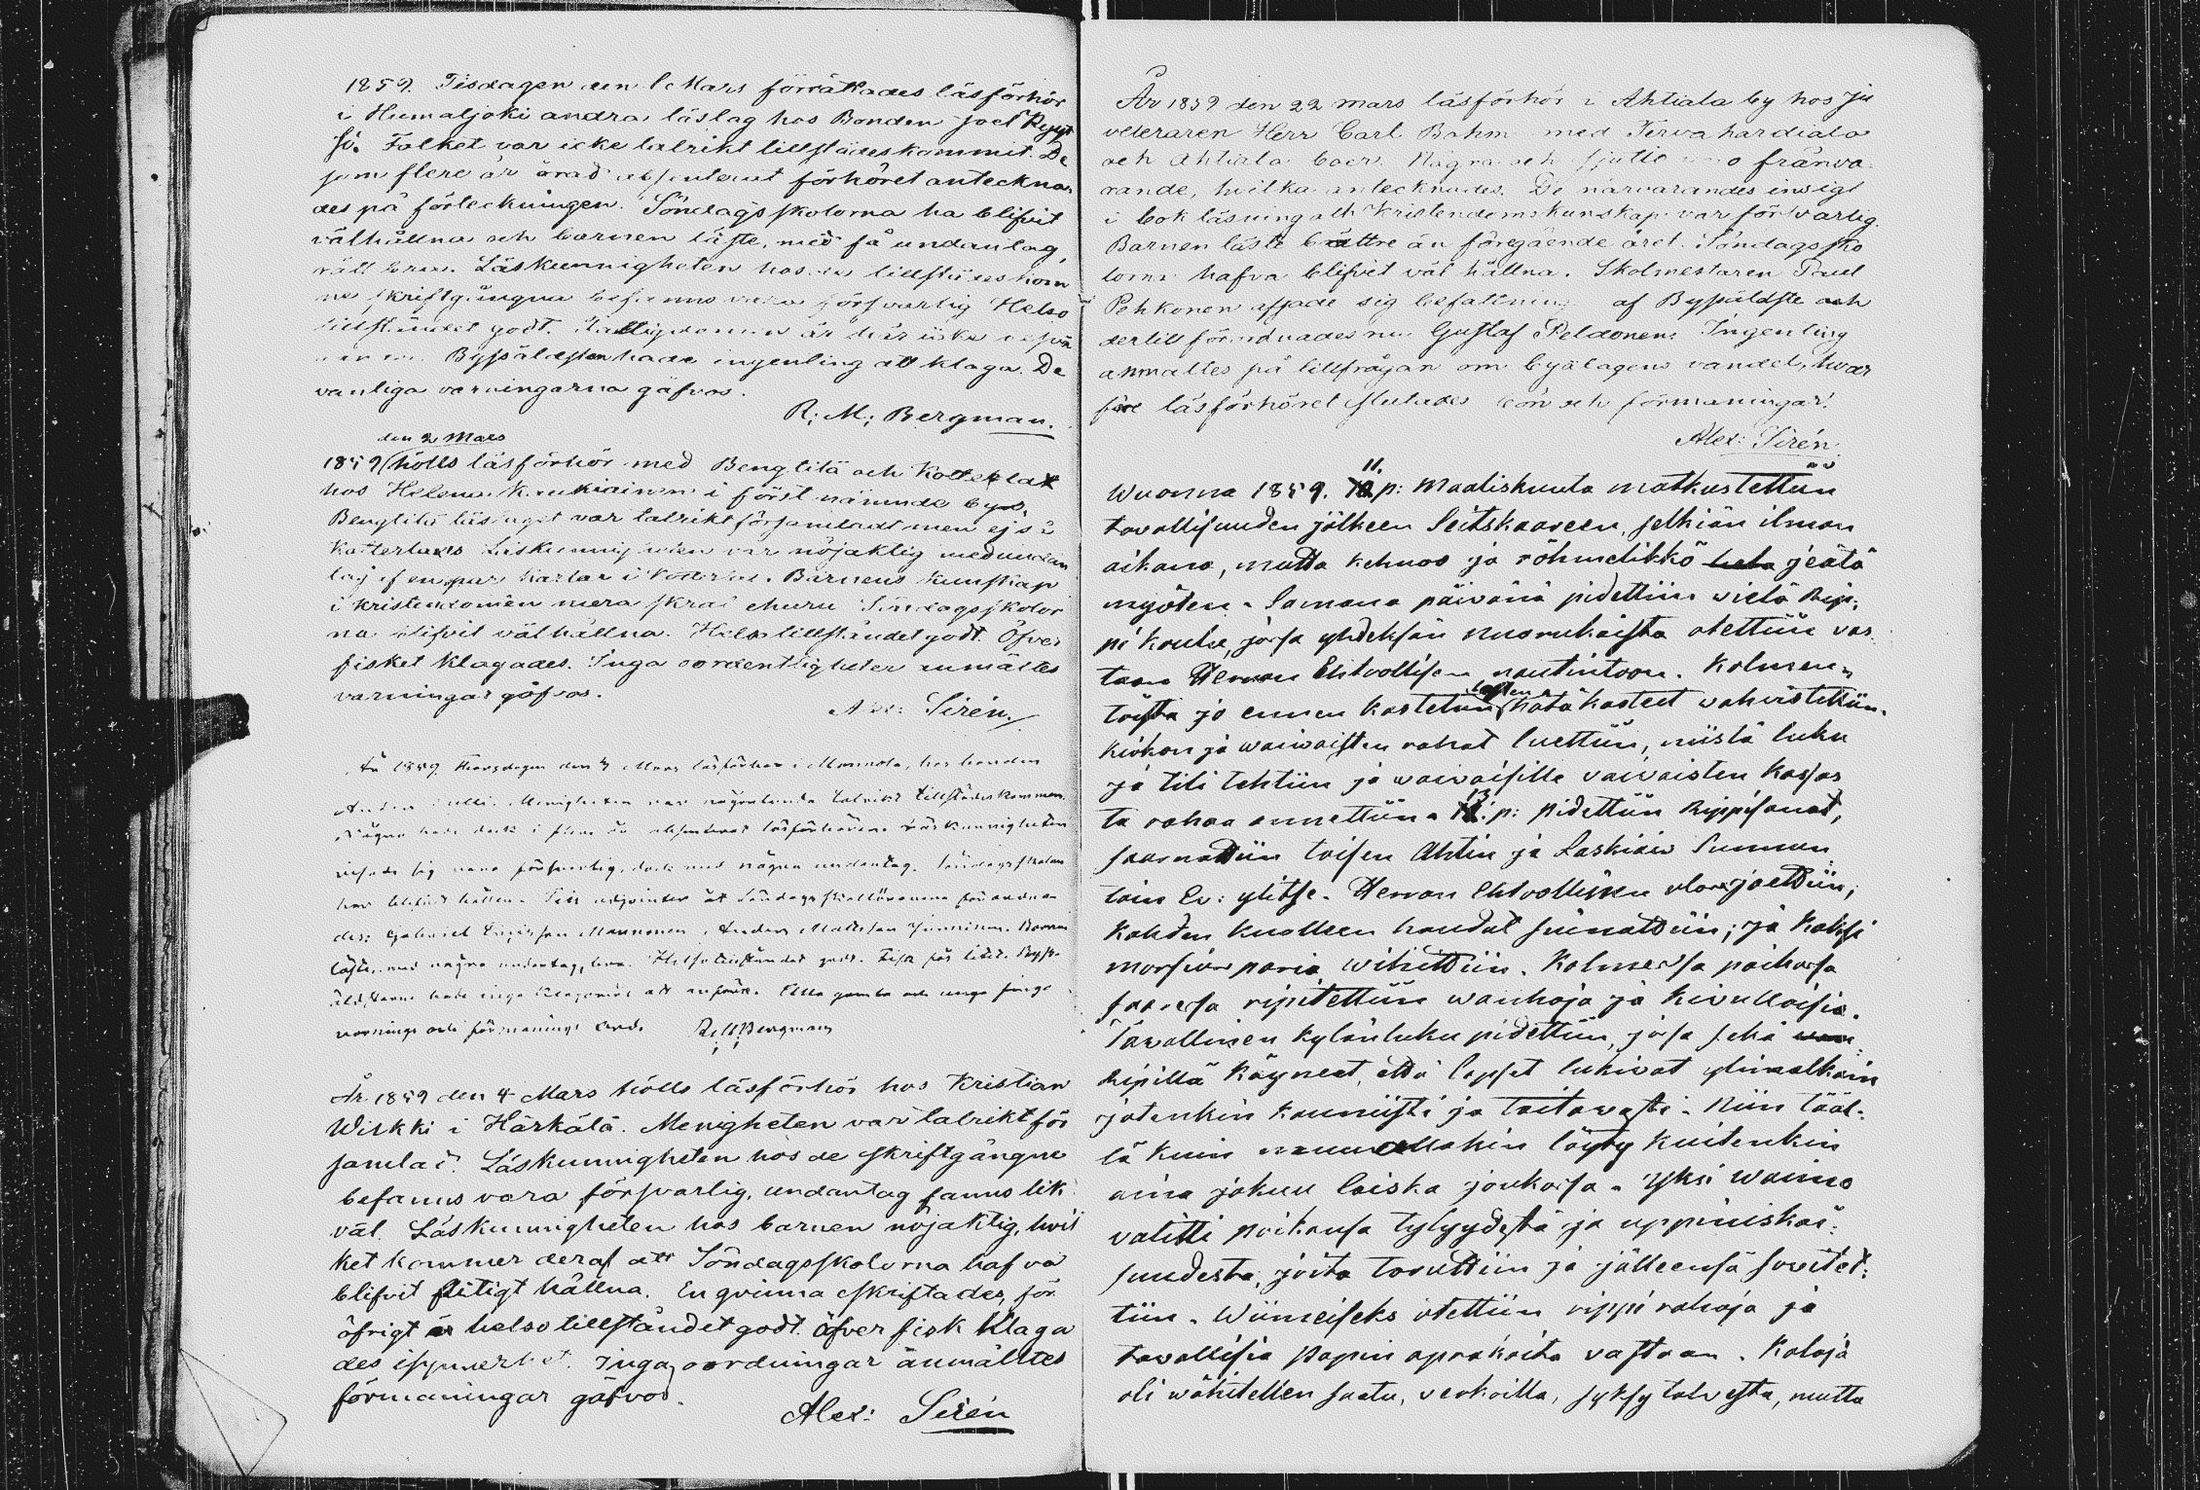 1859. Tisdagen den 1 Mars förrättades läsförhör
i Humaljoki andra läslag hos Bonden Joel
Folket var icke talrikt tillstädeskommit. De
som flere år å rad absenterat förhöret anteckna
des på förteckningen. Söndagsskolorna ha blifvit
välhållna och barnen läste, med få undantag,
rätt bra. Läskunnigheten hos de tillstädeskom
ne skriftgångna befanns vara försvarlig Helso
tillståndet godt. är här icke
Byssäldsten hade ingenting att klaga. De
vanliga varningarna gåfvos.
R: M: Bergman.
den 2 Mars
1859 hölls läsförhör med Benglilä och Katterlax
hos Helena Kaukiainen i först nämnde by.
Benglilä läslaget var talrikt församladt men ej så
Katterlaxs Läskunnigheten var nöjaktig med undan
tag af en par karlar i Katterlax. Barnens kunskap
i kristendomen mera skral ehuru Söndagsskolor
na blifvit välhållna. Helsotillståndet godt. Öfver
fisket klagades. Inga oordentligheter anmältes
varningar gåfvos.
Alex: Sirén.
År 1859 Thorsdagen den 3 Mars läsförhör i Mannola, hos bonden
Anders Menigheten var någorlunda talrikt tillstädeskommen.
Några hade dock i flere år absenterat läsförhören. Läskunnigheten
visade sig vara försvarlig, dock med några undantag. Söndagsskolan
har blifvit hållen. Till adjointer åt Söndagsskollärarena förordna
des: Gabriel Mannonen, Anders Mattsson Barnen
läste, med några undantag, bra. Helsotillståndet godt. Fisk fås litet. Byss
äldstarne hade inga klagomål att anföra. Ella gamla och unga finge
varnings och förmanings ord. R: M: Bergman
År 1859 den 4 Mars hölls läsförhör hos Kristian
Wirkki i Härkälä. Menigheten var talrikt för
samlad. Läskunnigheten hos de skriftgångne
befanns vara försvarlig, undantag fanns lik
väl. Läskunnigheten hos barnen nöjaktig, hvil
ket kommer deraf att Söndagsskolorna hafva
blifvit flitigt hållna. En qvinna skriftades, för
öfrigt är helsotillståndet godt. Öfver fisk klaga
des Inga oordningar anmältes
förmaningar gåfvos.
Alex: Sirén
År 1859 den 22 mars läsförhör i Ahtiala by hos Ju
veleraren Herr Carl Bahm med Kervahardiala
och Ahtiala boer. Några och sjutio frånva
rande, hvilka antecknades. De närvarandes insigt
i bok läsning och Kristendomskunskap var försvarlig.
Barnen läste bättre än föregående året. Söndagssko
lorna hafva blifvit väl hållna. Skolmestaren Paul
Pohkonen afsade sig befattning af Byssäldste och
dertill förordnades nu Gustaf Peldonen. Ingenting
anmältes på tillfrågan om byälagens vandel, hvar
före läsförhöret slutades bön och förmaningar.
Alex: Sirén
Wuonna 1859. 11. p: Maaliskuuta matkustettiin
tavallisuuden jälkeen Seitskaareen, selkiän ilman
aikana, mutta kehnoo ja röhmelikkö jeätä
myöten. Samana päivänä pidettiin vielä Rip:
pi koulu, josa yhdeksän nuorukaista otettiin vas
taan Herran Ehtoollisen nautintoon. Kolmen-
toista jo ennen kastetun lasten hätäkasteet wahvistettiin.
Kirkon ja waivaisten rahat luettiin, niistä luku
ja tili tehtiin ja waivaisille vaivaisten kassas
ta rahaa annettiin. 13. p: pidettiin Rippisanat,
saarnattiin toisen Ahtin ja Laskiais Sunnun
tain Ev: ylitse. Herran Ehtoollinen ulosjaettiin,
kahden kuolleen haudat siunattiin; ja kaksi
morsian paria wihittiin. Kolmessa paikassa
saaressa ripitettiin wanhoja ja kivulloisia.
Tavallinen kylänluku pidettiin, josa sekä
Ripillä käyneet, että lapset lukivat ylimalkain
jotenkin kauniisti ja taitawasti. Niin tääl:
lä kuin muuallakin löyty kuitenkin
aina jokuu laiska joukossa. Yksi waimo
valitti poikansa tylyydestä ja uppiniskai:
suudesta, joita toruttiin ja jälleensä sovitet:
tiin. Wiimeiseks otettiin rippi rahoja ja
tavallisia Papin aprakoita vastaan. Kaloja
oli wähitellen saatu, verkoilla, syksy talvesta, mutta